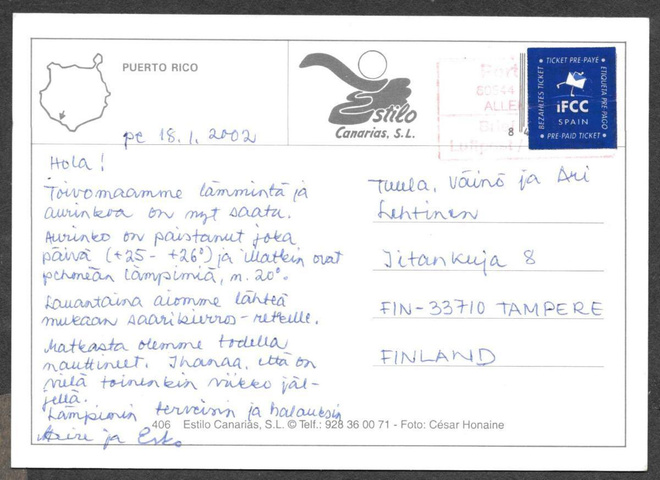 PUERTO RICO
Estilo
Canarias, S.L.
TICKET PRE-PAYE
BEZAHLTES TICKET
ETIQUETA PRE-PAGO
iFCC
SPAIN
PRE-PAID TICKET
pe 18.1.2002
Hola!
Toivomaamme lämmintä ja
aurinkoa on nyt saatu.
Aurinko on paistanut joka
päivä (+25 - +26°) ja illatkin ovat
pehmeän lämpimiä, n. 20°.
Lauantaina aiomme lähteä
mukaan saarikierros-retkelle.
Matkasta olemme todella
nauttineet. Ihanaa, että on
vielä toinenkin viikko jäl-
jellä.
Lämpimin terveisin ja halauksin
ja Esko
Tuula, Väinö ja Ari
Lehtinen
Iitankuja 8
FIN-33710 TAMPERE
FINLAND
406 Estilo Canarias, S.L. © Telf.: 928 36 00 71 - Foto: César Honaine